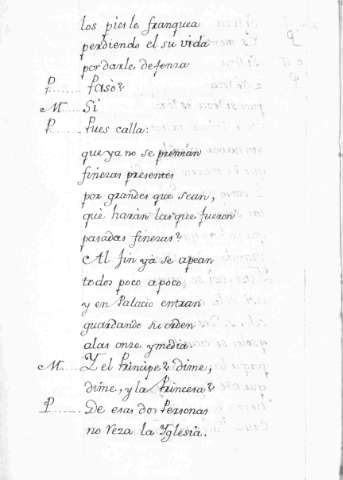 los pies le franquea
perdiendo el su vida
por darle defensa
P. Pasò?
M. Si
P. Pues calla:
que ya no se premian
finezas presentes
por grandes que sean,
què haràn las que fueron
pasadas finezas?
Al fin ya se apean
todos poco a poco
y en Palacio entran
guardando su orden
a las onze y media
M. Y el Principe? dime,
dime, y la Princesa?
P. De esas dos Personas
no reza la Yglesia.